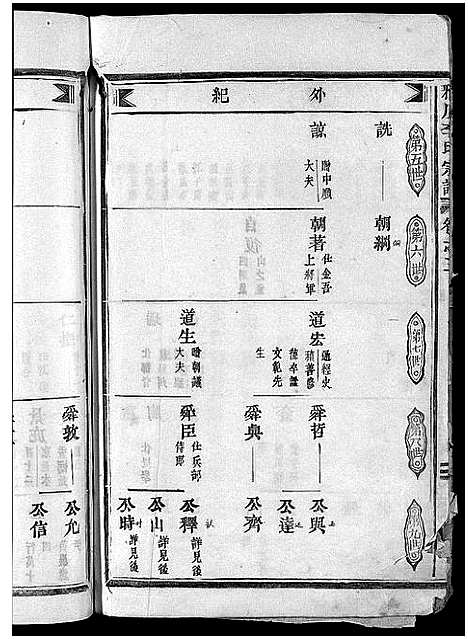 外紀
第五世
第六世
第七世
第八世
第九世
詵
朝綱
諒
贈中順
大夫
朝著
仕金吾
上將軍
道宏
通經史
積善修
德卒諡
文範先
生
舜哲
公與
公達
舜典
公齊
道生
贈朝議
大夫
舜臣
仕兵部
侍郎
公釋
詳見後
公山
詳見後
公時
詳見後
舜敦
公允
公信